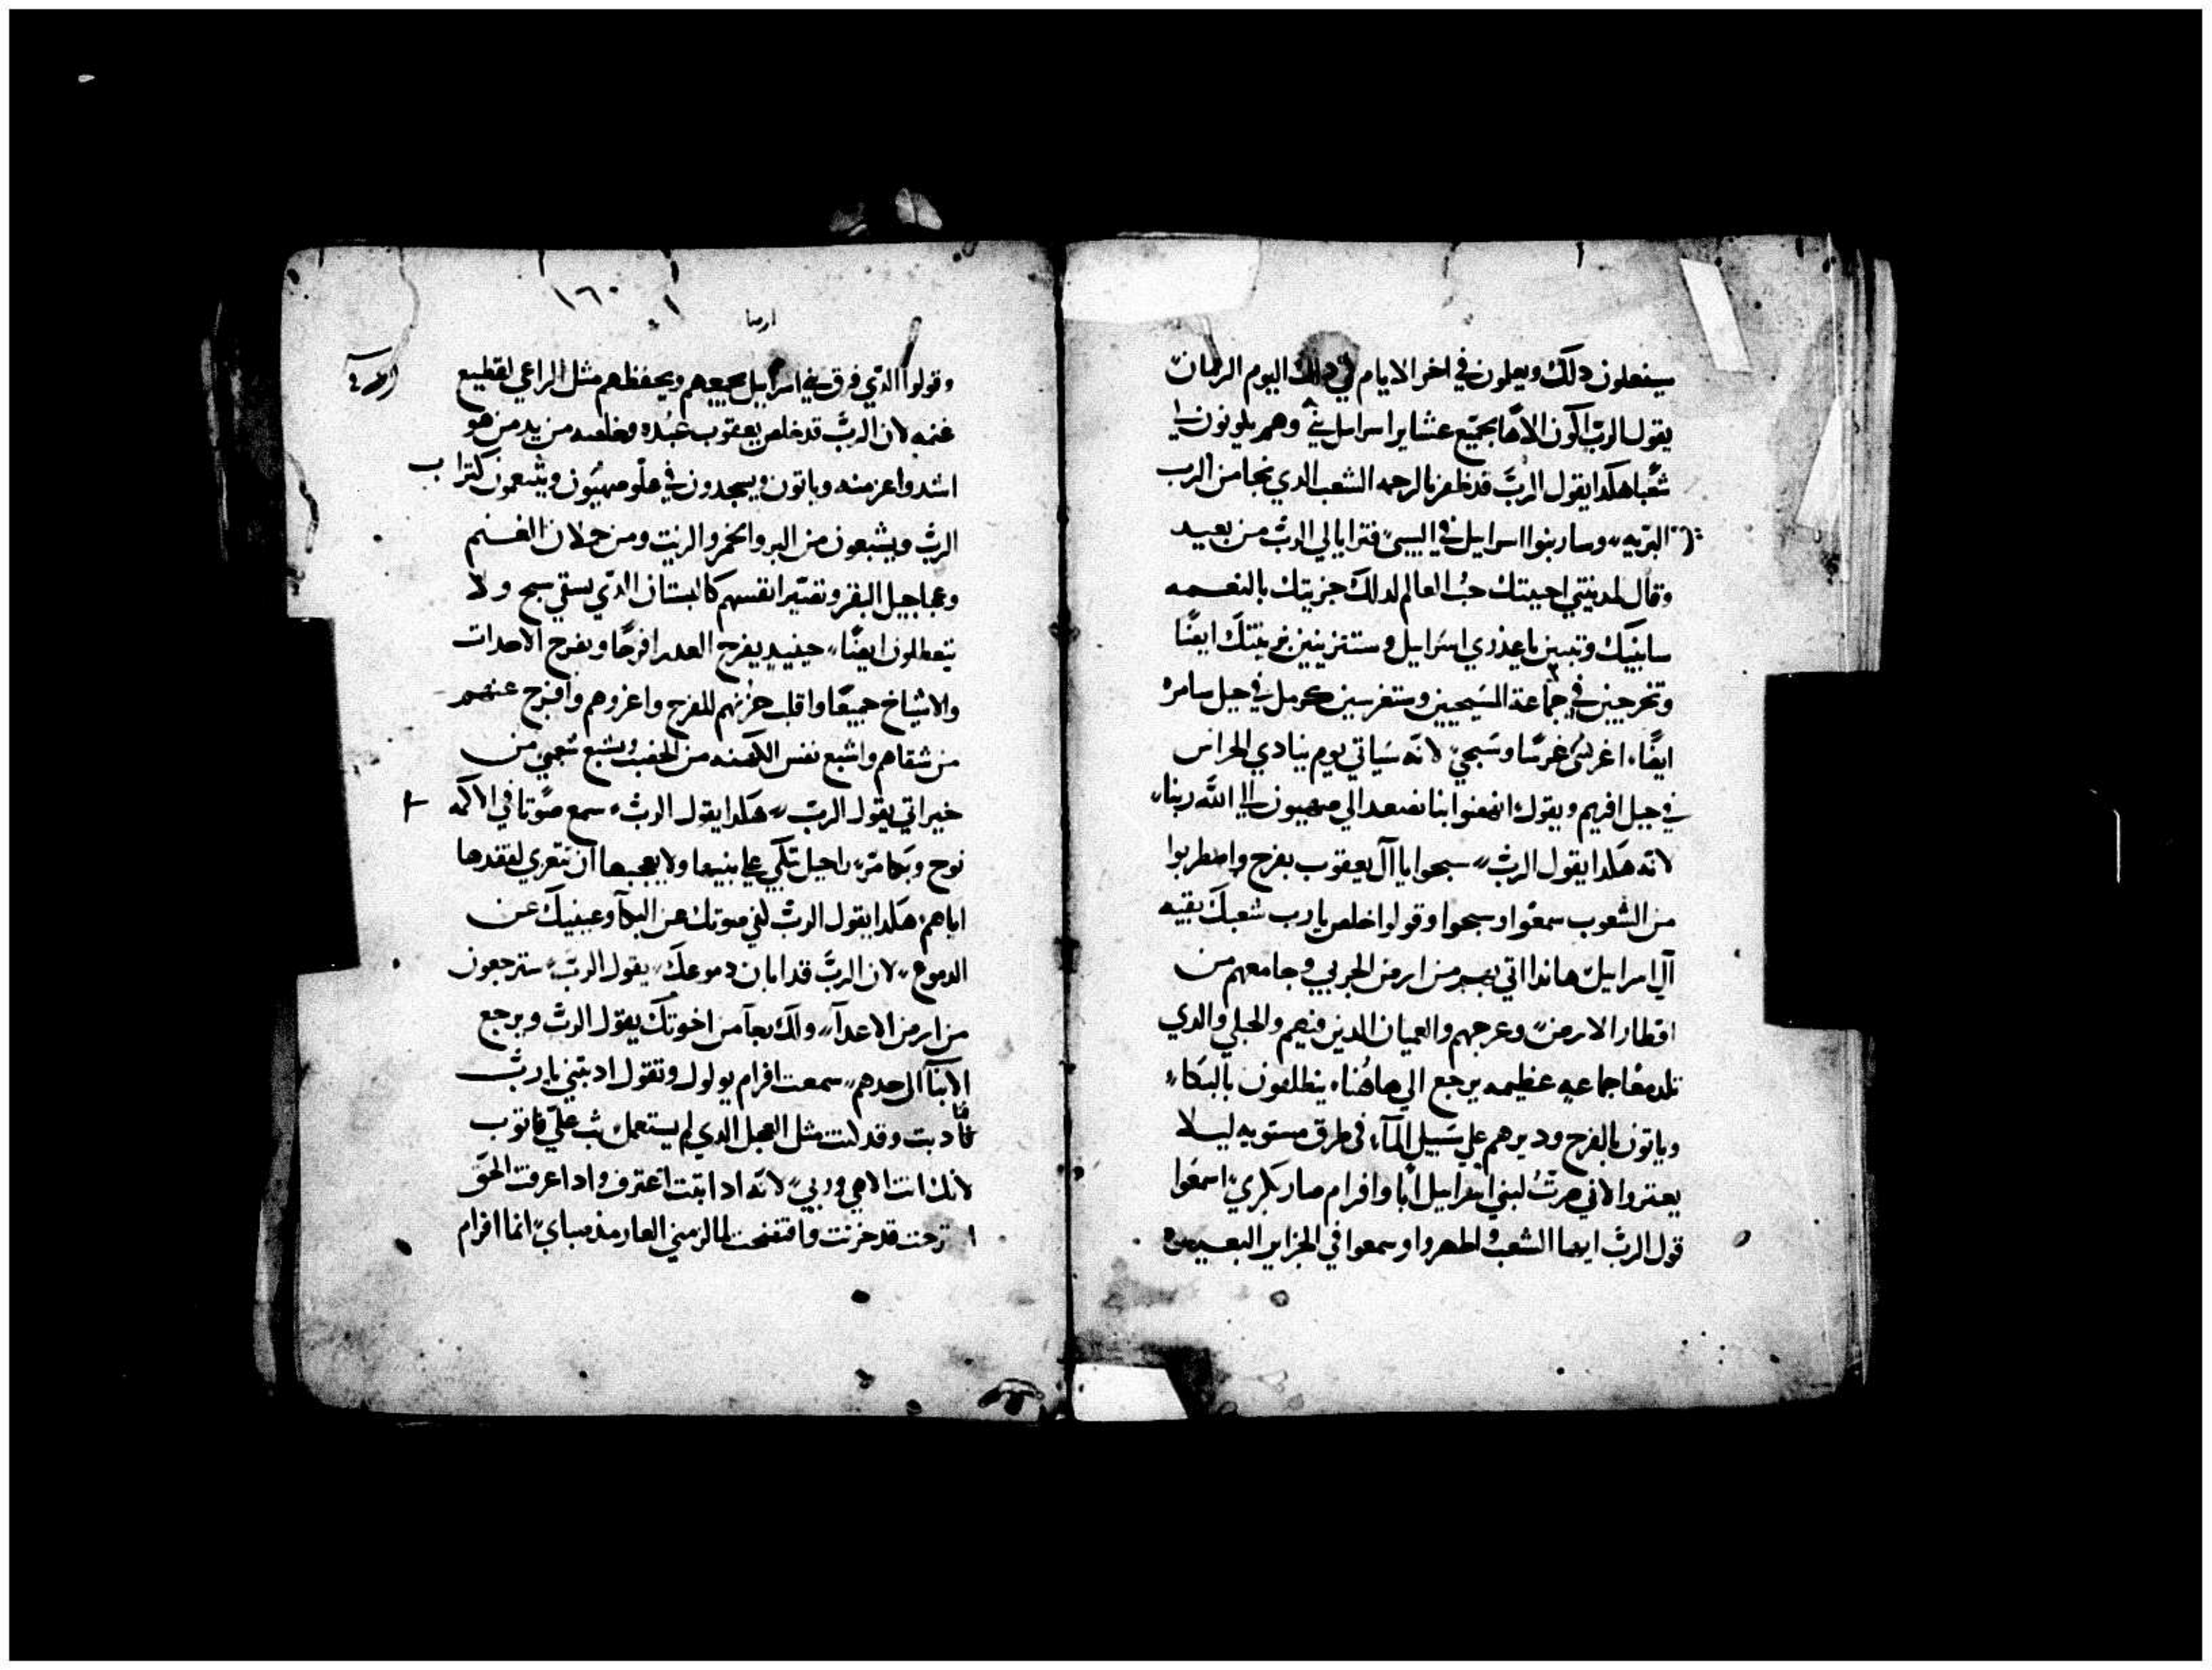 سيفعلون دلك ويعلون في اخر الايام في دلك اليوم الزمان
يقول الرب اكون الاها بجميع عشاير اسراييل بني وهم يكونون لي
شعبا هكدا يقول الرب قد ظفر بالرحمه الشعب الدي نجا من الرب
البريه وسار بنوا اسراييل في السبي فترايا لي الرب من بعيد
وقال لمدينتي احببتك حب العالم لدلك جزيتك بالنعمه
سابنيك وتبنين يا عذري اسراييل وستتزينين بزينتك ايضا
وتخرجين في جماعة المسيحيين وستغرسين كرمل في جبل سامره
ايضا اغرس غرسا وسبحي لانه سياتي يوم ينادي الحراس
في جبل افريم ويقول انهضوا بنا نصعد الي صهيون الي الله ربنا
لانه هكدا يقول الرب سبحوا يا آل يعقوب بفرح واضطربوا
من الشعوب سمعوا وسبحوا وقولوا خلص يا رب شعبك بقيه
آل اسراييل هاندا اتي بهم من ارض الجربي وجامعهم من
اقطار الارض وعرجهم والعميان الدين فيهم والحبلي والدي
تلد معا جماعه عظيمه يرجع الي هاهنا ينطلقون بالبكاء
وياتون بالفرح ودبرهم علي سبيل المآء في طرق مستويه ليلا
يعتروا لاني صرت لبني اسراييل ابا وافرام صار بكري اسمعوا
قول الرب ايها الشعب واطهروا وسمعوا في الجزاير البعيده
١٦٠
ارميا
وقولوا الدي فرق بني اسراييل يجمعهم ويحفظهم مثل الراعي لقطيع
غنمه لان الرب قد خلص يعقوب عبده وخلصه من يد من هو
اشد واعز منه وياتون ويسجدون في علو صهيون ويشبعون كتراب
الرب ويشبعون من البر والخمر والزيت ومن حملان الغنم
وعجاجيل البقر وتصير انفسهم كالبستان الدي يسقي سيح ولا
يتعطلون ايضا حينيد يفرح العدرا فرحا ويفرح الاحداث
والاشياخ جميعا واقلب حزنهم للفرح واعزوهم وافرج عنهم
من شقاهم واشبع نفس الكهنه من الخصب ويشبع شعبي من
خيراتي يقول الرب هكدا يقول الرب سمع صوتا في الاكمه
نوح وبكا مر راحيل تبكي علي بنيها ولا يعجبها ان تتعزي لفقدها
اياهم هكدا يقول الرب لفي صوتك عن البكآ وعينيك عن
الدموع لان الرب قد ابان دموعك يقول الرب سترجعون
من ارض الاعدآ ولك رجآ من اخوتك يقول الرب ويرجع
الابنآ الي حدهم سمعت افرام يولول وتقول ادبتني يا رب
فتادبت وقد كنت مثل العجل الدي لم يستعمل تب علي فاتوب
لانك انت الاهي وربي لانه ادا تبت اعترف وادا عرفت الحق
ترحت قد حزنت وافتضحت لما لزمني العار مند صباي انما افرام